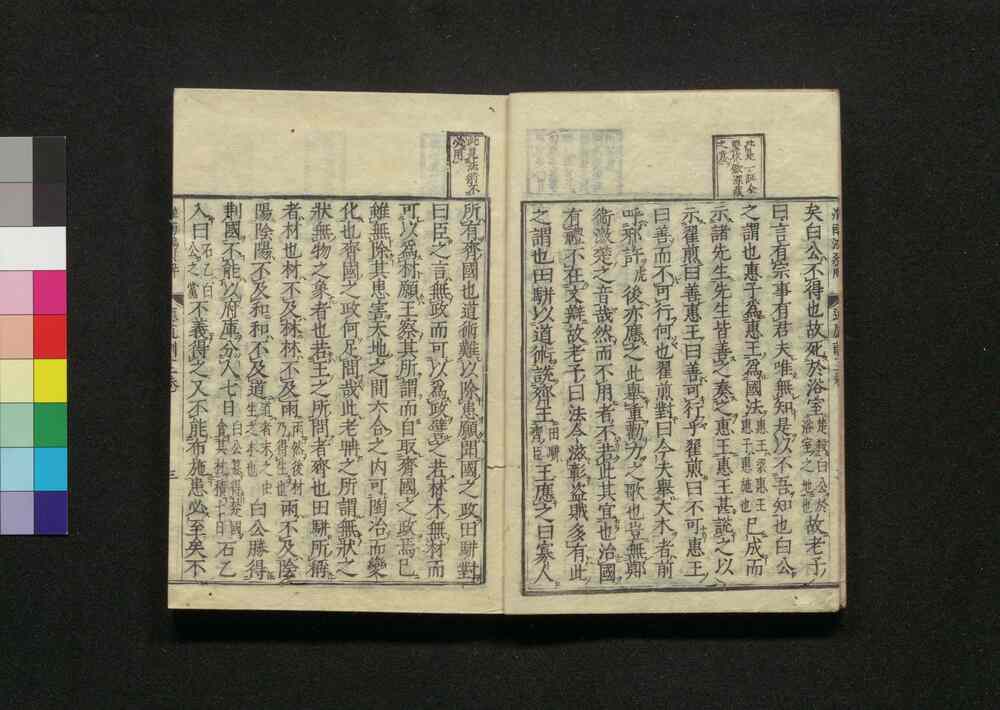 矣白公不得也故死於浴室楚殺白公於浴室之地也故老子
曰言有宗事有君夫唯無知是以不吾知也白公
之謂也惠子爲惠王爲國法惠王梁惠王惠子惠施也已成而
示諸先生先生皆善之奏之惠王惠王甚說之以
示翟煎曰善惠王曰善可行乎翟煎曰不可惠王
曰善而不可行何也翟煎對曰今夫舉大木者前
呼邪許後亦應之此舉重勸力之歌也豈無鄭
衛激楚之音哉然而不用者不若此其宜也治國
有禮不在文辯故老子曰法令滋彰盜賊多有此
之謂也田駢以道術說齊王田駢齊臣王應之曰寡人
所有齊國也道術難以除患願聞國之政田駢對
曰臣之言無政而可以爲政譬之若林木無材而
可以爲材願王察其所謂而自取齊國之政焉已
雖無除其患害天地之間六合之內可陶冶而變
化也齊國之政何足問哉此老聃之所謂無狀之
狀無物之象者也若王之所問者齊也田駢所稱
者材也材不及林林不及雨雨然後材乃得生也雨不及陰
陽陰陽不及和和不及道道者末之由生之本也白公勝得
荊國不能以府庫分人七日白公簒得楚國貪其財積七日石乙
入曰石乙白公之黨不義得之又不能布施患必至矣不